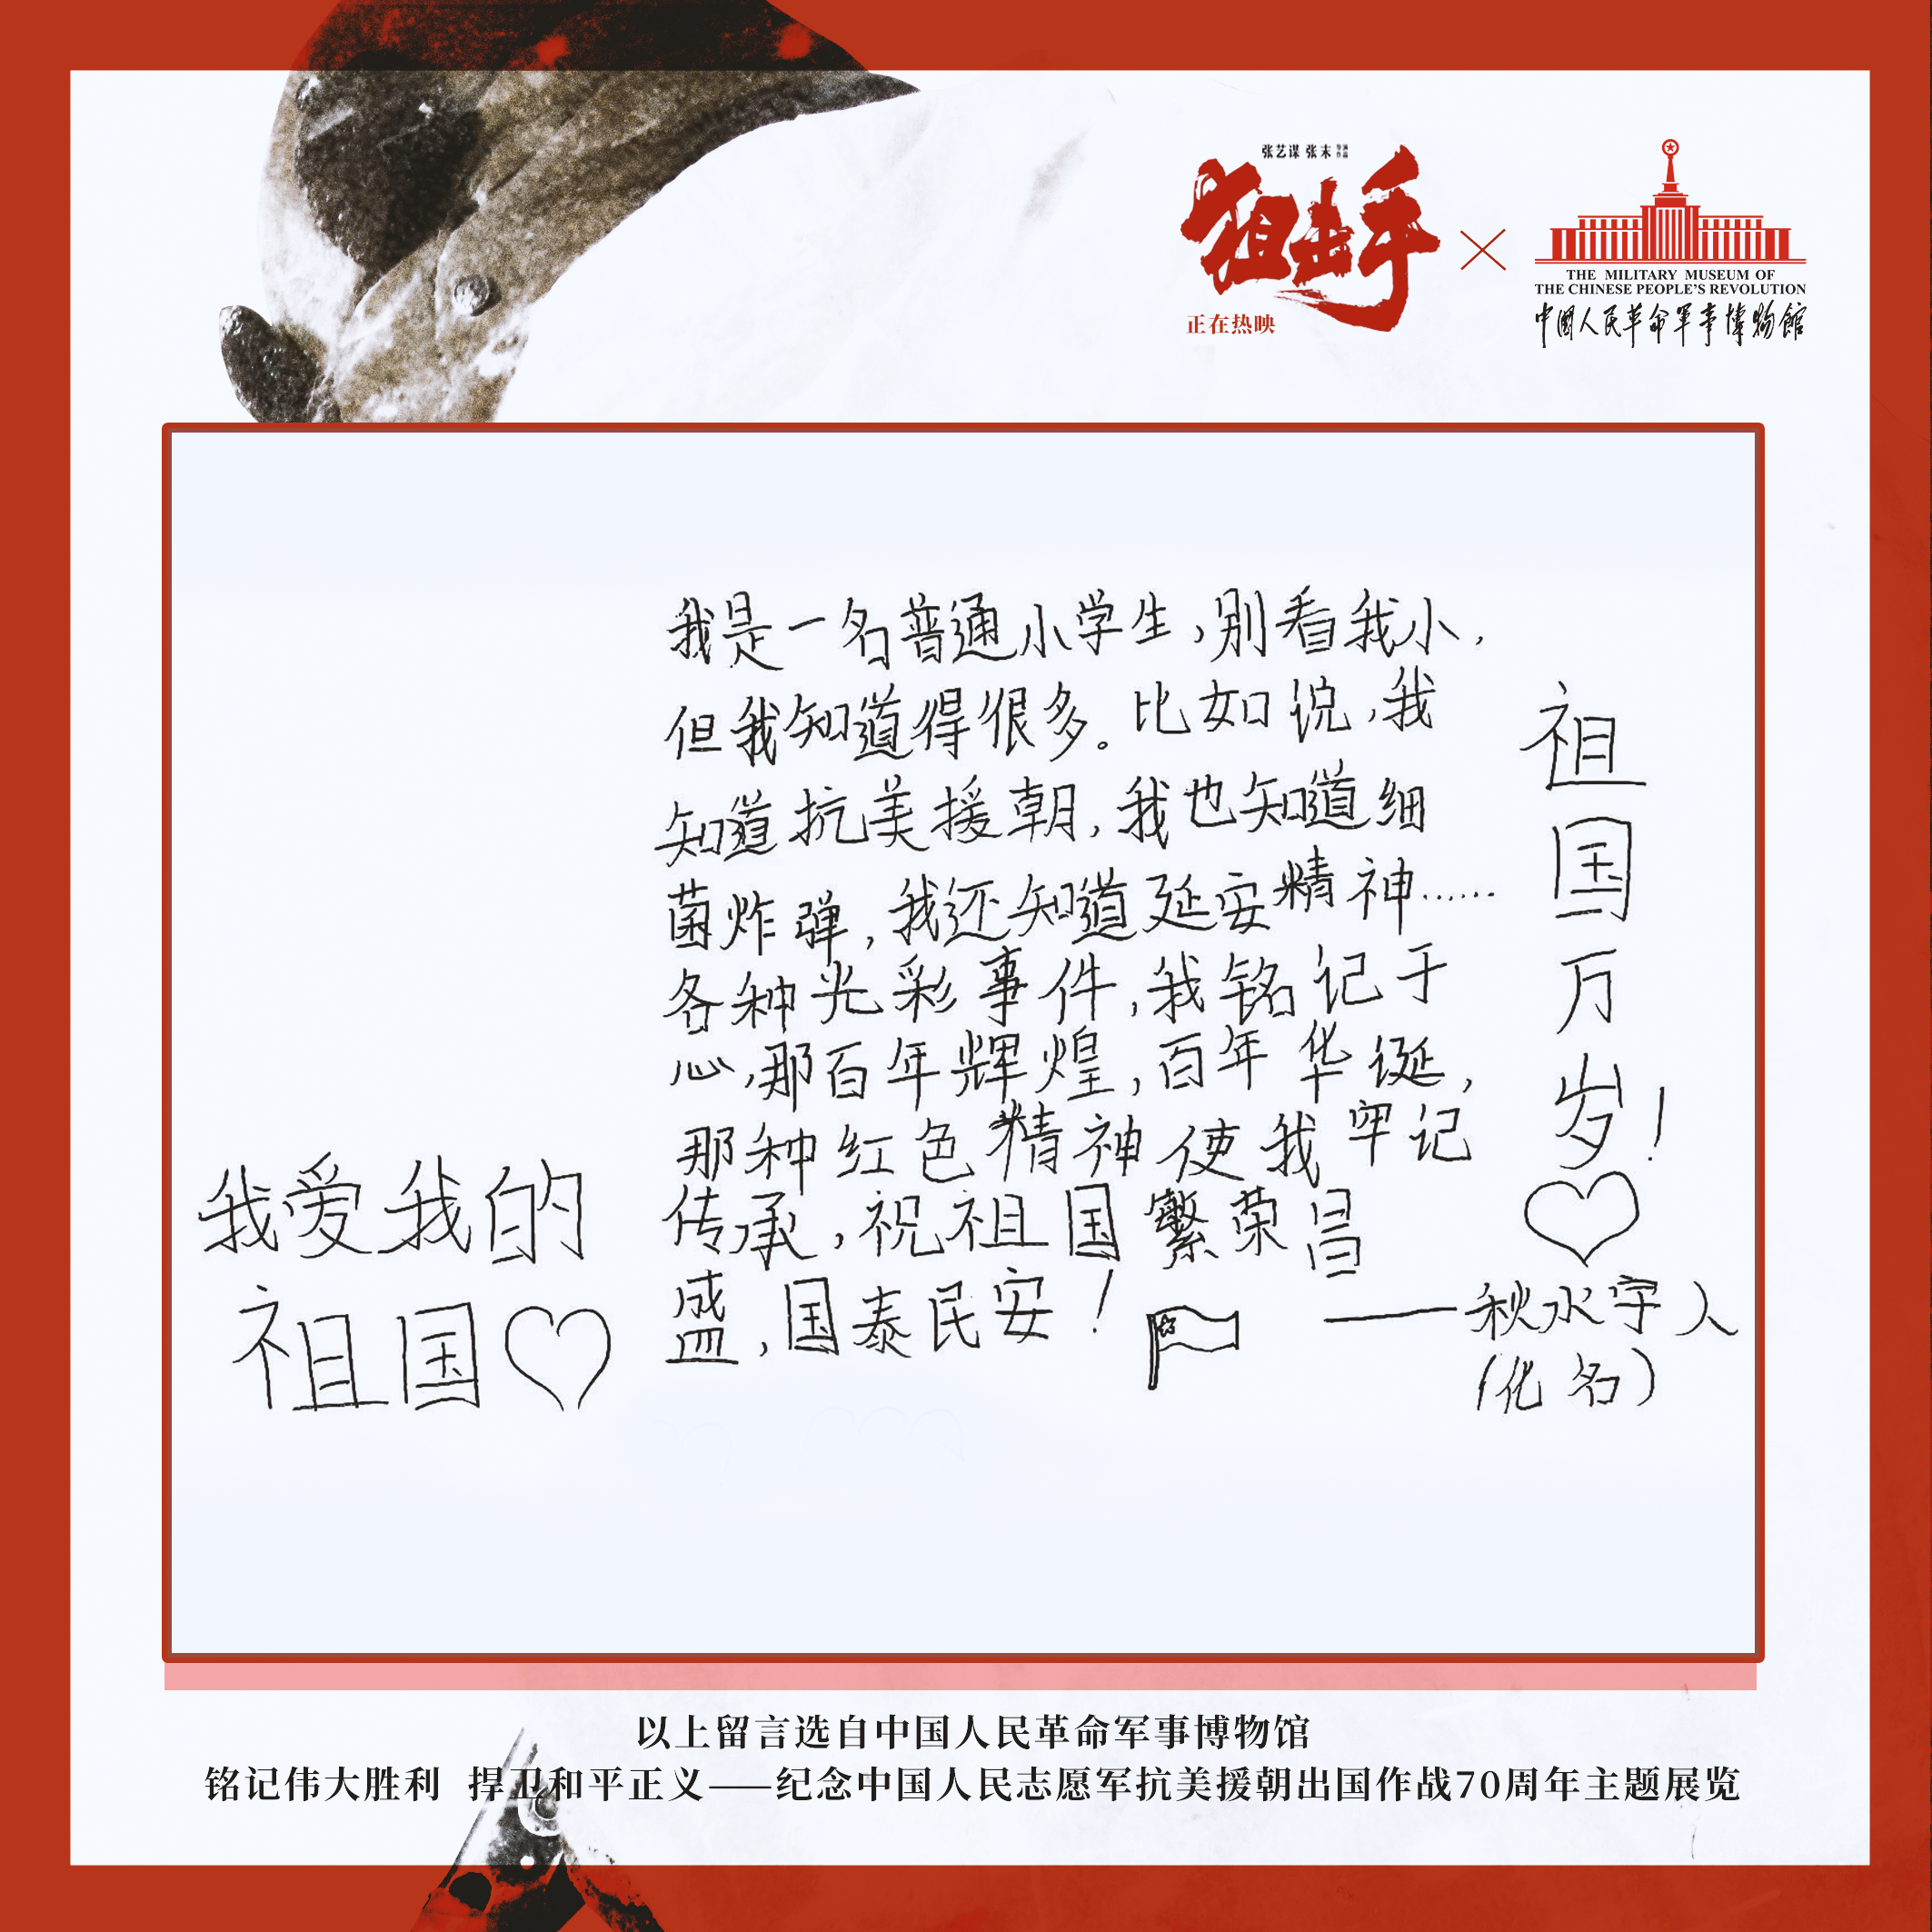 张艺谋 张末 导演作品
狙击手
正在热映
THE MILITARY MUSEUM OF
THE CHINESE PEOPLE'S REVOLUTION
中国人民革命軍事博物館
我是一名普通小学生，别看我小，
但我知道得很多。比如说，我
知道抗美援朝，我也知道细
菌炸弹，我还知道延安精神……
各种光彩事件，我铭记于
心，那百年辉煌，百年华诞，
那种红色精神使我牢记
传承，祝祖国繁荣昌
盛，国泰民安！
祖国万岁！
我爱我的
祖国
——秋水宇人
（化名）
以上留言选自中国人民革命军事博物馆
铭记伟大胜利 捍卫和平正义——纪念中国人民志愿军抗美援朝出国作战70周年主题展览